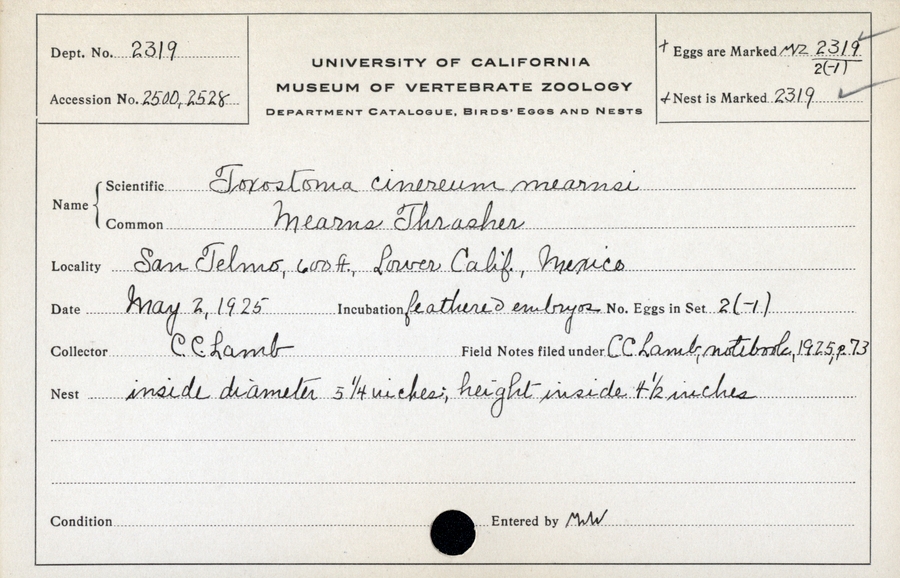 Dept. No. 2319
Accession No. 2500, 2528
UNIVERSITY OF CALIFORNIA
MUSEUM OF VERTEBRATE ZOOLOGY
DEPARTMENT CATALOGUE, BIRDS' EGGS AND NESTS
+ Eggs are Marked MVZ 2319
2(-1)
+ Nest is Marked 2319
Name
Scientific Toxostoma cinereum mearnsi
Common Mearns Thrasher
Locality San Telmo, 600 ft., Lower Calif., Mexico
Date May 2, 1925 Incubation feathered embryos No. Eggs in Set 2(-1)
Collector C.C. Lamb Field Notes filed under CC Lamb, notebook, 1925, p. 73
Nest inside diameter 5 1/4 inches; height inside 4 1/2 inches
Condition Entered by MW